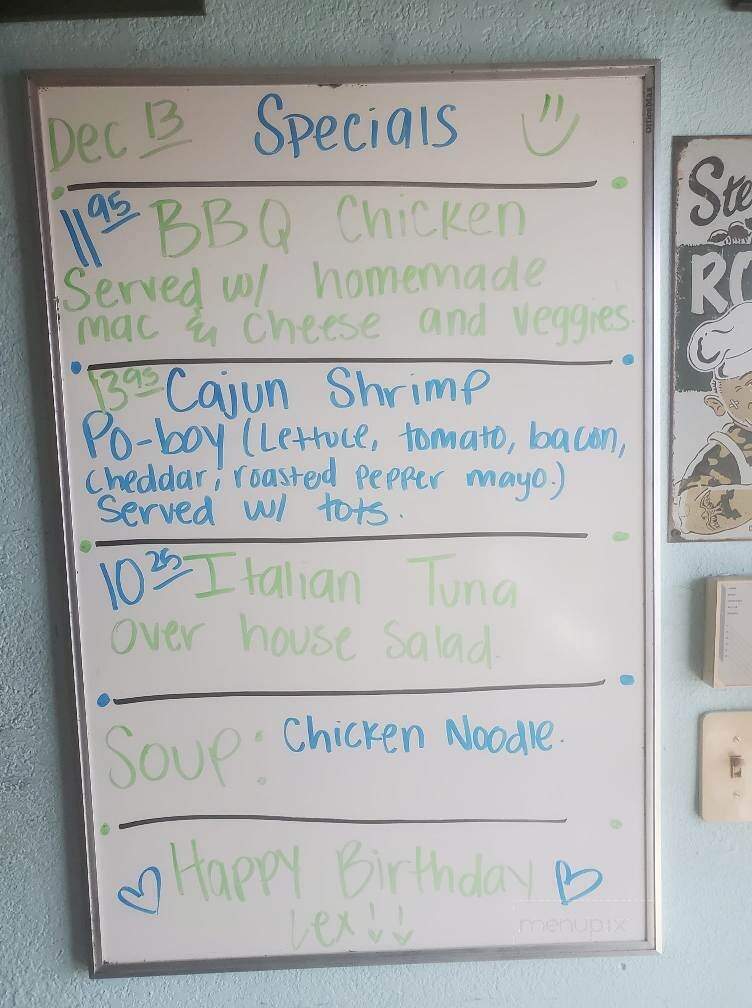 Dec 13 Specials
11 95 BBQ Chicken
Served w/ homemade
mac & cheese and veggies.
13 95 Cajun Shrimp
Po-boy (Lettuce, tomato, bacon,
cheddar, roasted pepper mayo.)
Served w/ tots.
10 25 Italian Tuna
Over house salad.
Soup: Chicken Noodle.
Happy Birthday
Lex!!
OfficeMax
menupix